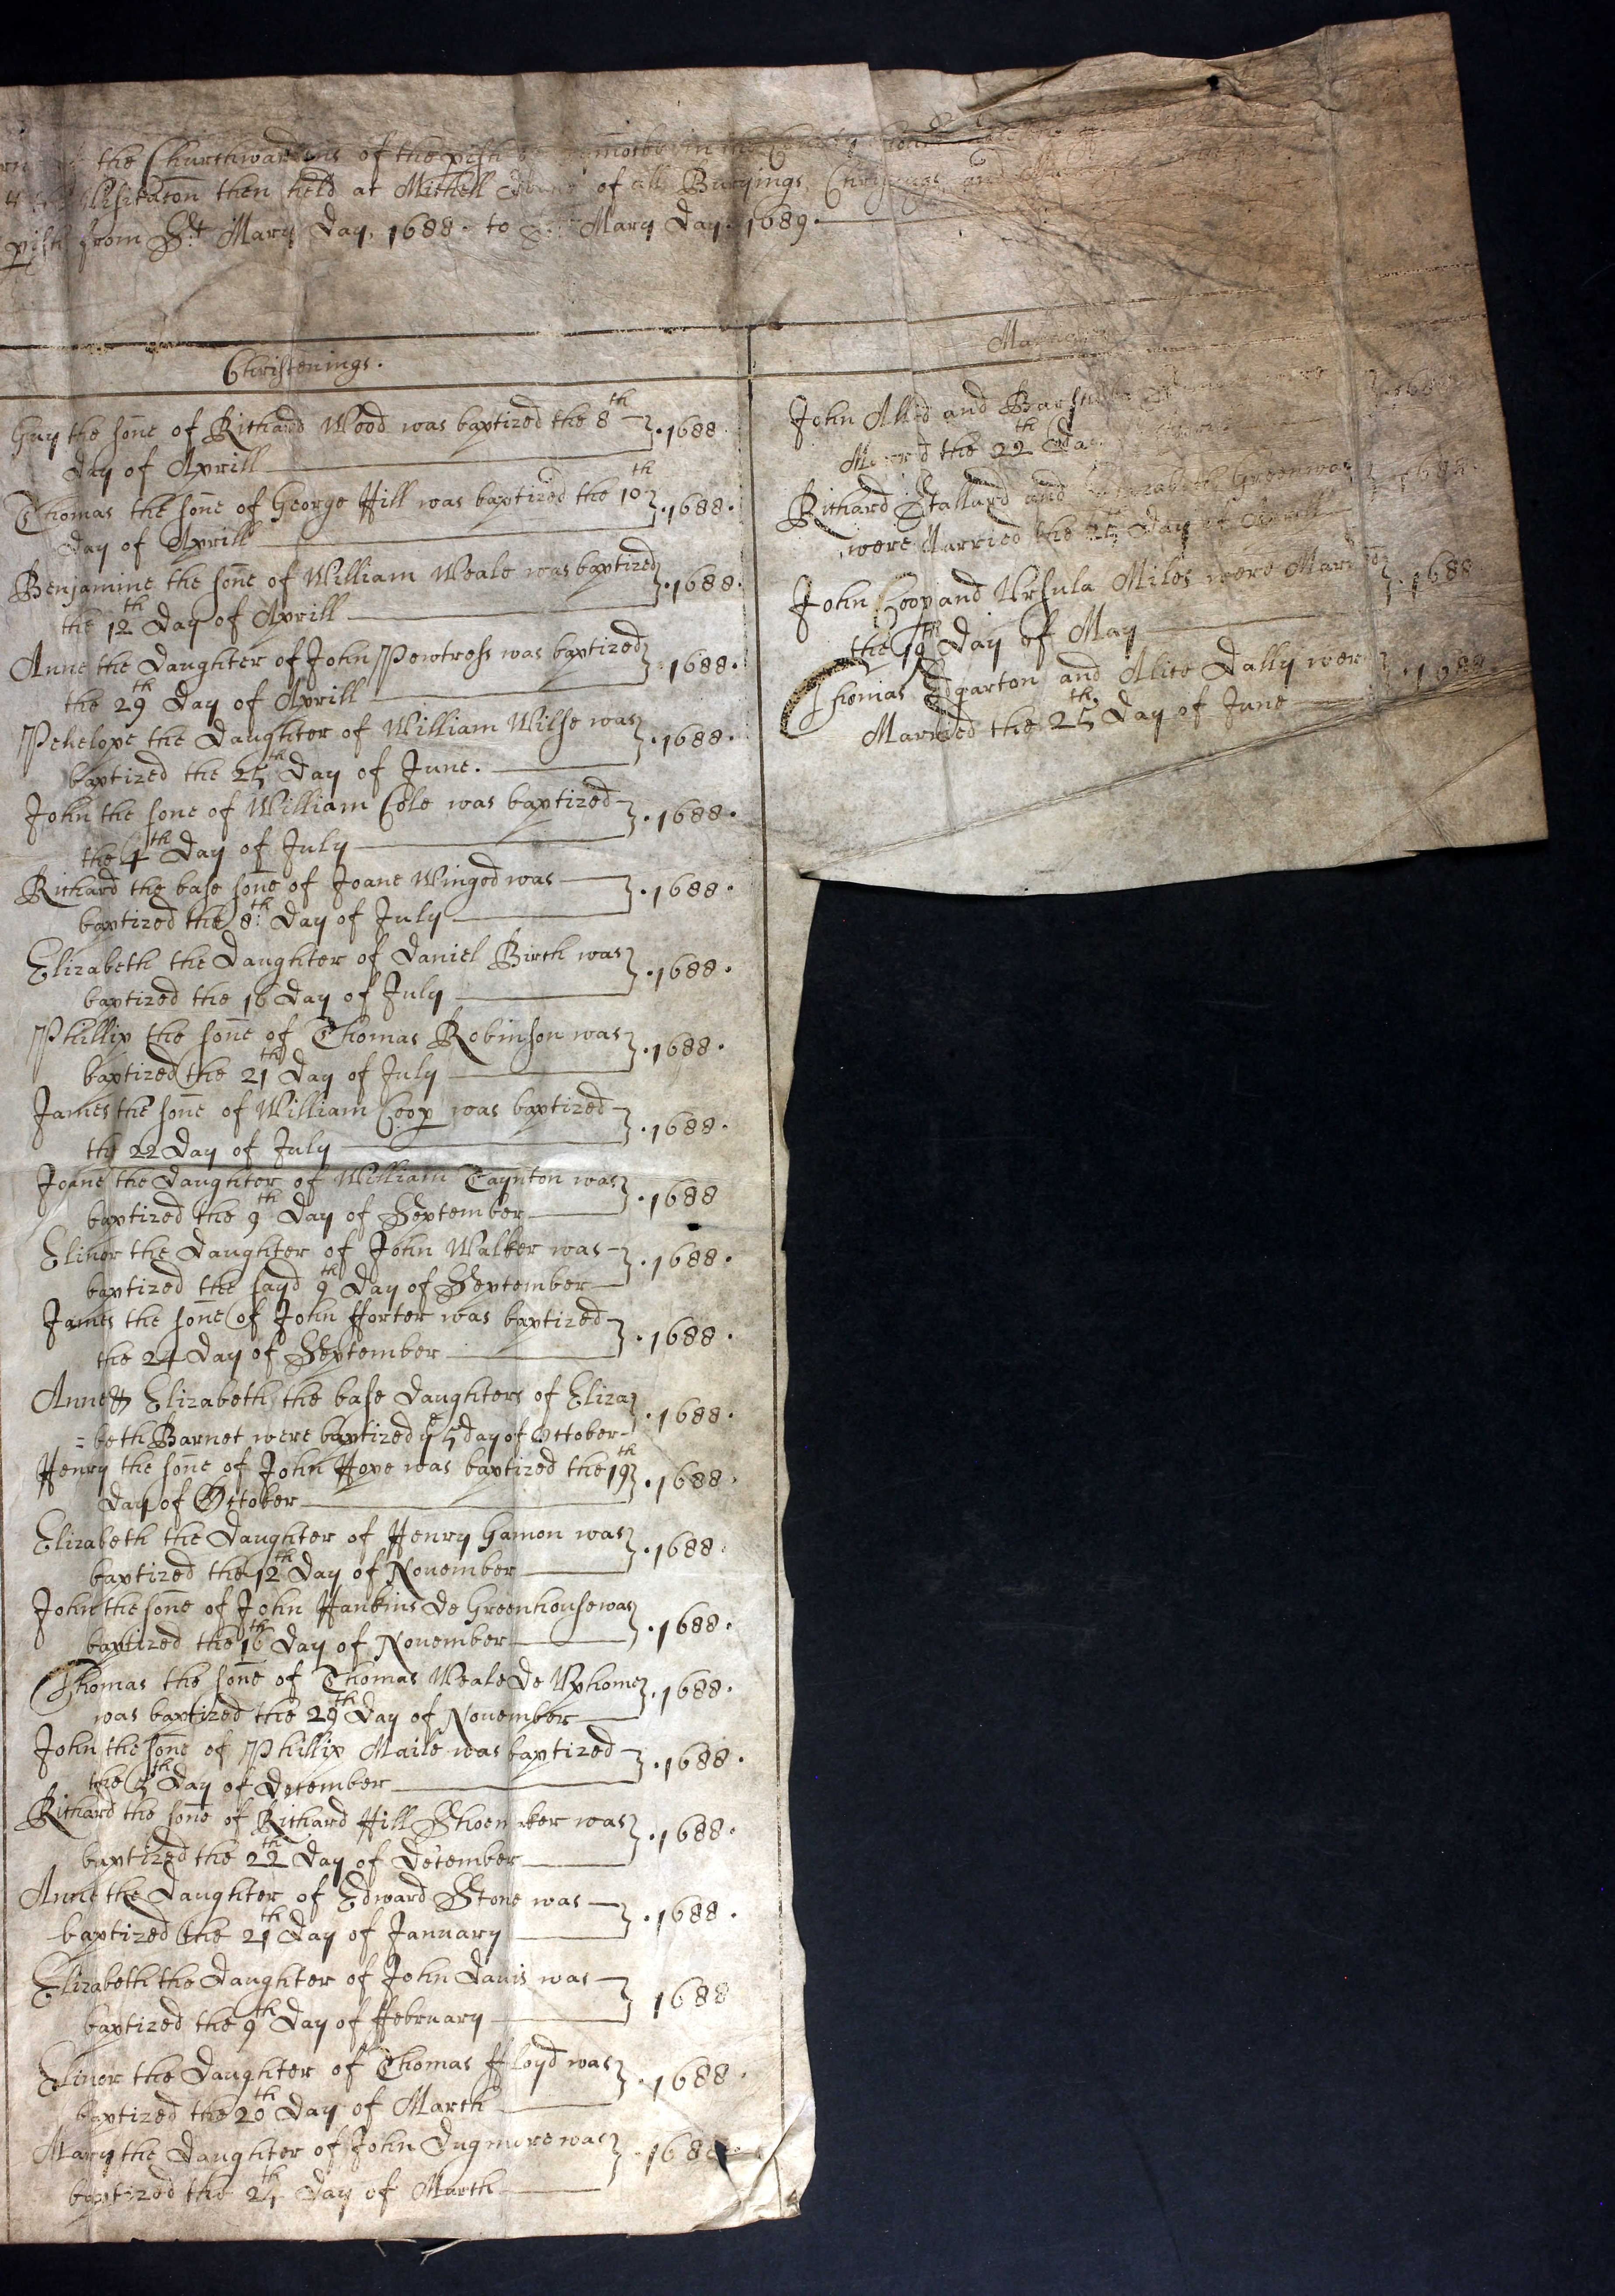 the Churchwardens of the pish in the County
Visitation then held at Michell of all Buryings Christnings and
pish from St Mary Day, 1688 to St Mary Day. 1689.
Christenings.
Guy the sone of Richard Wood was baptized the 8th .1688.
day of Aprill
Thomas the sone of George Hill was baptized the 10th .1688.
day of Aprill
Benjamine the sone of William Weale was baptized .1688.
the 12th Day of Aprill
Anne the Daughter of John Pewtress was baptized .1688.
the 29th Day of Aprill
Penelope the Daughter of William Wilse was .1688.
baptized the 25th Day of June.
John the sone of William Cole was baptized .1688.
the 4th Day of July
Richard the base sone of Joane Winged was .1688.
baptized the 8th Day of July
Elizabeth the Daughter of Daniel Birch was .1688.
baptized the 16 Day of July
Phillip the sone of Thomas Robinson was .1688.
baptized the 21th Day of July
James the sone of William Coop was baptized .1688.
the 22 Day of July
Joane the Daughter of William Taynton was .1688
baptized the 9th Day of September
Elinor the Daughter of John Walker was .1688.
baptized the sayd 9th Day of September
James the sone of John fforter was baptized .1688.
the 24 Day of September
Anne & Elizabeth the base Daughters of Eliza .1688.
=beth Barnet were baptized ye 5 day of October
Henry the sone of John Hope was baptized the 19th .1688.
Day of October
Elizabeth the Daughter of Henry Gamon was .1688.
baptized the 12th Day of November
John the sone of John Hankins de Greenhouse was .1688.
baptized the 16th Day of November
Thomas the sone of Thomas Weale De Uphome .1688.
was baptized the 29th Day of November
John the sone of Phillip Maile was baptized .1688.
the 3th Day of December
Richard the sone of Richard Hill Shoemaker was .1688.
baptized the 22th Day of December
Anne the Daughter of Edward Stone was .1688.
baptized the 21th Day of January
Elizabeth the Daughter of John Davis was 1688
baptized the 9th Day of ffebruary
Elinor the Daughter of Thomas ffloyd was .1688.
baptized the 20th Day of March
Mary the Daughter of John Dugmore was .1688.
baptized the 24th Day of March
Marriages
John Allied and
Married the 22th Day
Richard Stallard and Elizabeth Greenway 1688.
were Married the 25th Day of Aprill
John Coop and Ursula Miles were Married .1688.
the 19th Day of May
Thomas Edgarton and Alice Dally were .1688.
Married the 25th Day of June